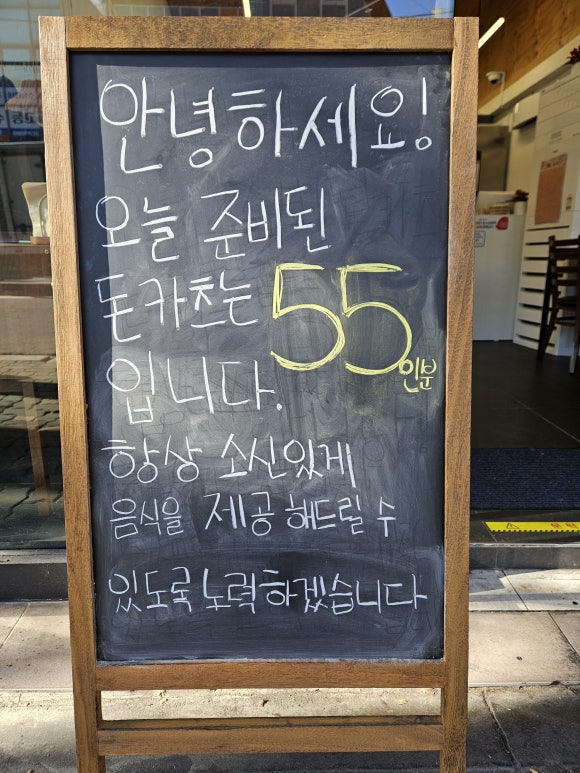 안녕하세요!
오늘 준비된
돈카츠는 55인분
입니다.
항상 소신있게
음식을 제공 해드릴 수
있도록 노력하겠습니다